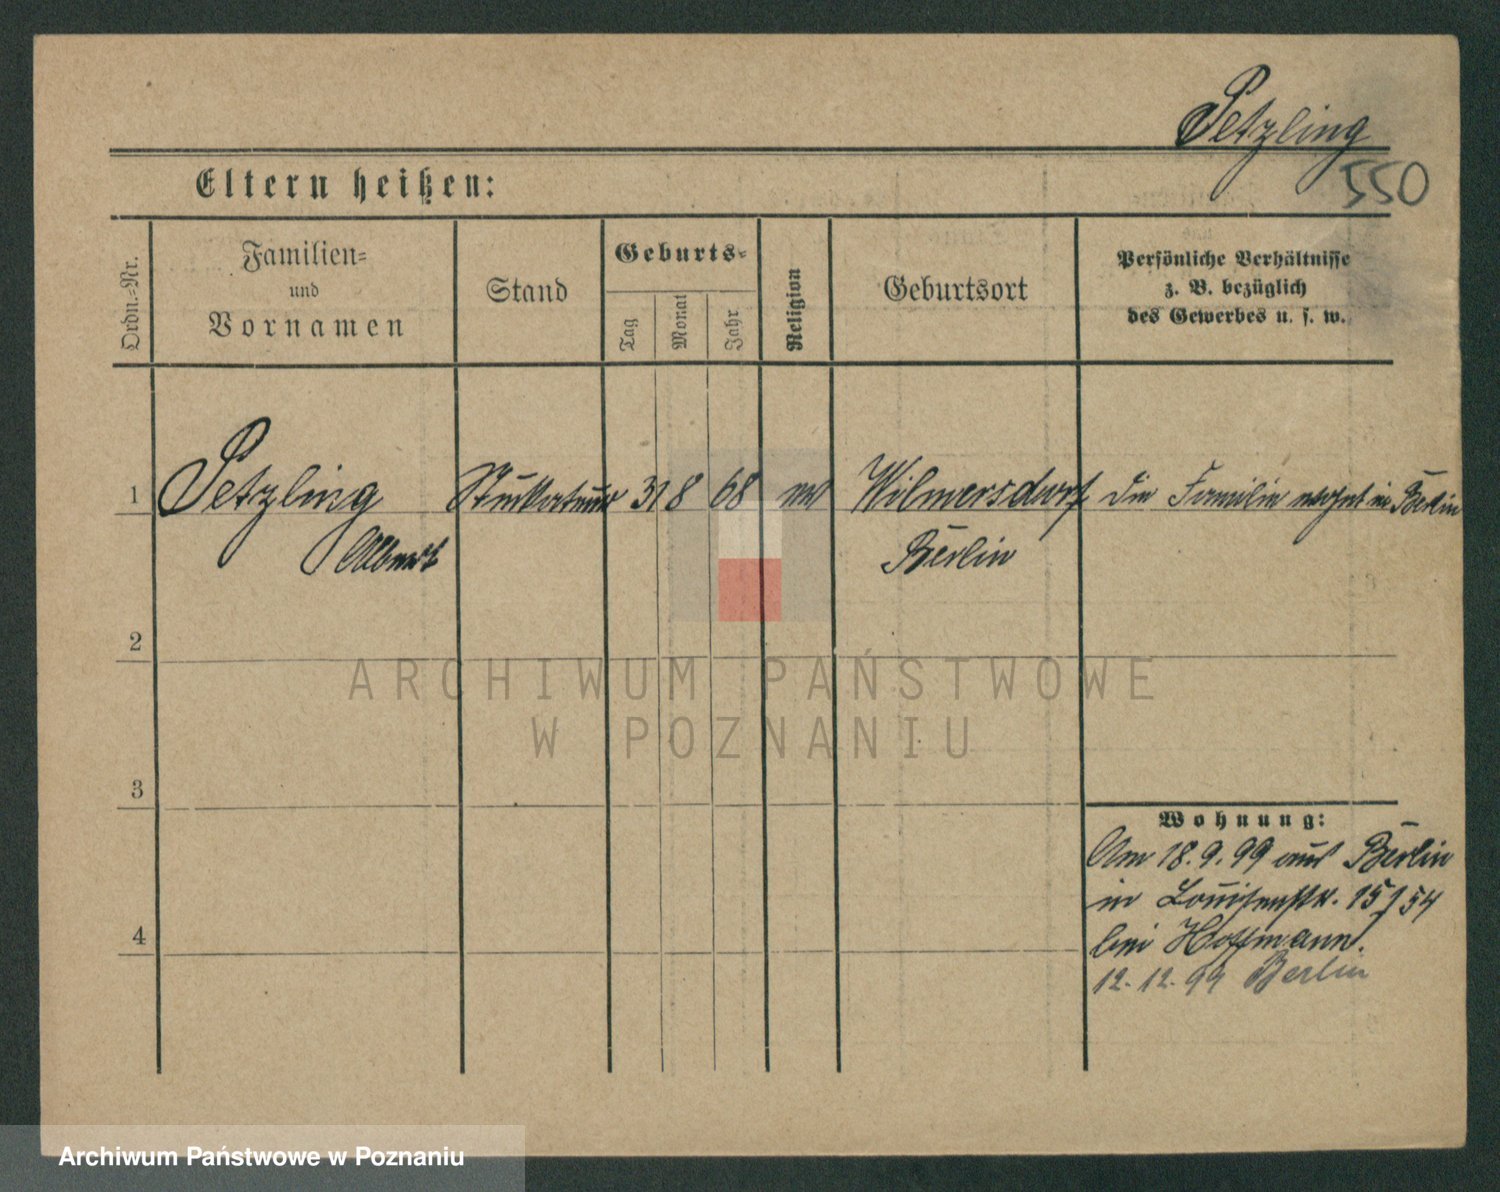 Petzling
550
Eltern heißen:
Ordn.-Nr.
Familien-
und
Vornamen
Stand
Geburts-
Tag
Monat
Jahr
Religion
Geburtsort
Persönliche Verhältnisse
z. B. bezüglich
des Gewerbes u. s. w.
1 Petzling Stukkateur 31 8 68 ev Wilmersdorf Die Familie wohnt in Berlin
Albert Berlin
2
ARCHIWUM PAŃSTWOWE
W POZNANIU
3
Wohnung:
Am 18.9.99 aus Berlin
in Louisenstr. 15/54
4
bei Hoffmann.
12.12.99 Berlin
Archiwum Państwowe w Poznaniu